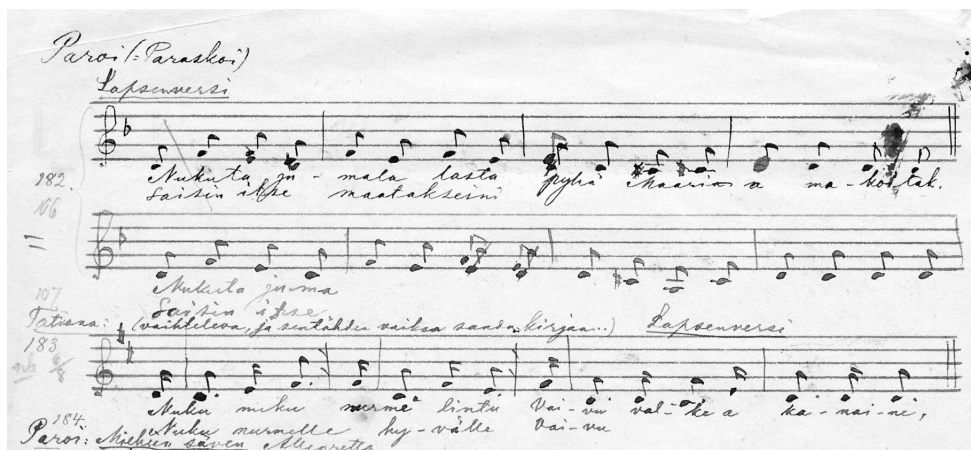 Paroi (= Paraskoi)
Lapsenversi
Nukuta ju - mala lasta pyhä Maaria a ma - koitak.
182.
Saisin itse maatakseini
106
Nukuta juma
107
Saisin itse
Tatiana: (vaihteleva, ja sentähden vaikea saada kirjaa...) Lapsenversi
183
6/8
Nuku niku nurmi lintu Vai - vu val - ke a ka - nai - ni,
184. Nuku nurmelle hy - välle Vai - vu
Paroi: Miehen sävel Allegretto